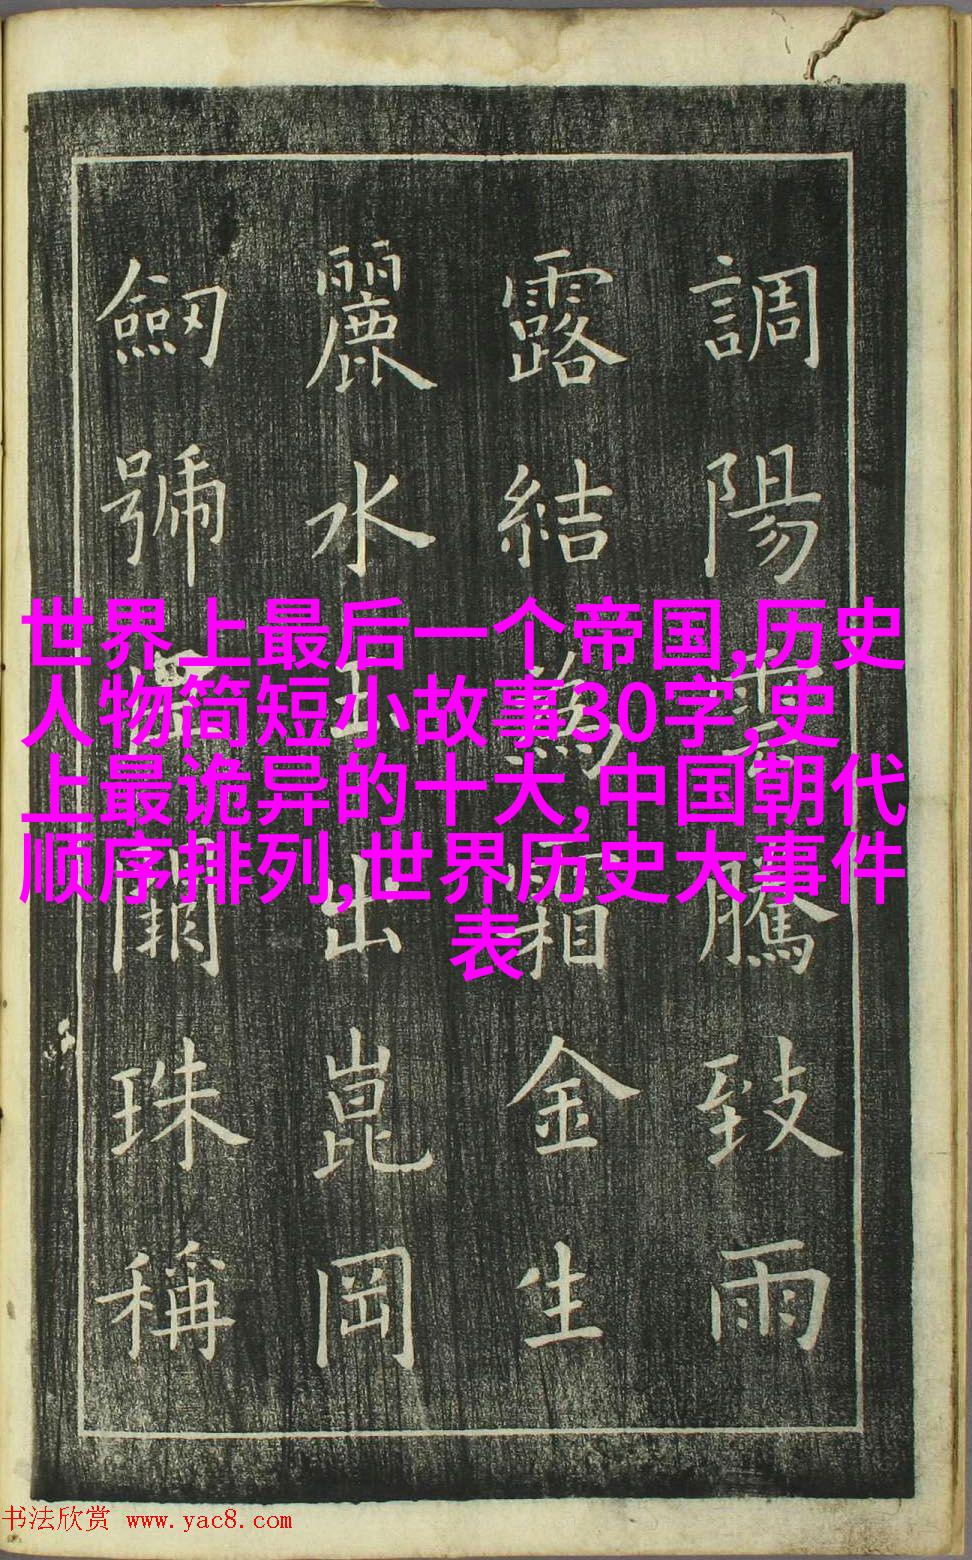 調陽雲騰致雨
露結為霜金生
麗水玉出崑岡
劒號闕珠稱
世界上最后一个帝国,历史
人物简短小故事30字,史
上最诡异的十大,中国朝代
顺序排列,世界历史大事件
表
书法欣赏 www.yac8.com